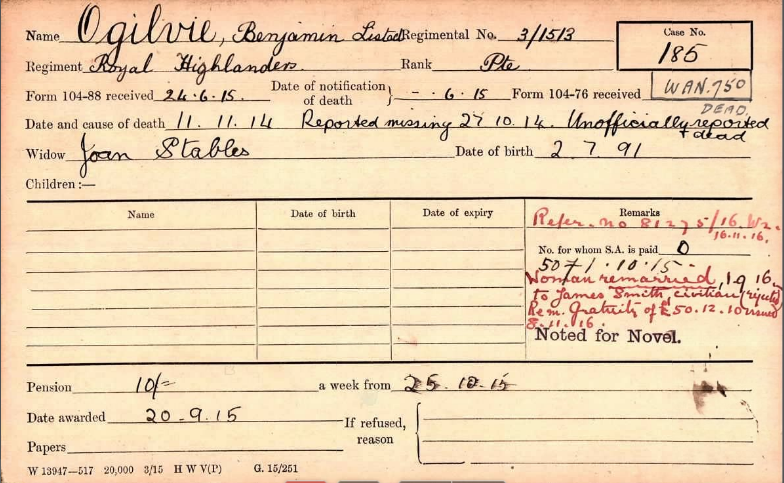 Name Ogilvie, Benjamin Listed Regimental No. 3/1513 Case No.
185
Regiment Royal Highlanders Rank Pte
WAN.750
Form 104-88 received 24.6.15. Date of notification of death } - . 6.15 Form 104-76 received
DEAD
Date and cause of death 11.11.14 Reported missing 27.10.14. Unofficially reported
+ dead
Widow Joan Stables Date of birth 2.7.91
Children :—
Name Date of birth Date of expiry Remarks
Refer. no 81275/16. W2.
16.11.16.
No. for whom S.A. is paid 0
Woman remarried, 1916
to James Smith, civilian
Rem. Gratuity of £50.12.10 issued
8.11.16.
Noted for Novel.
Pension 10/= a week from 25.10.15
Date awarded 20.9.15 If refused, reason
Papers
W 13947—517 20,000 3/15 H W V(P) G. 15/251